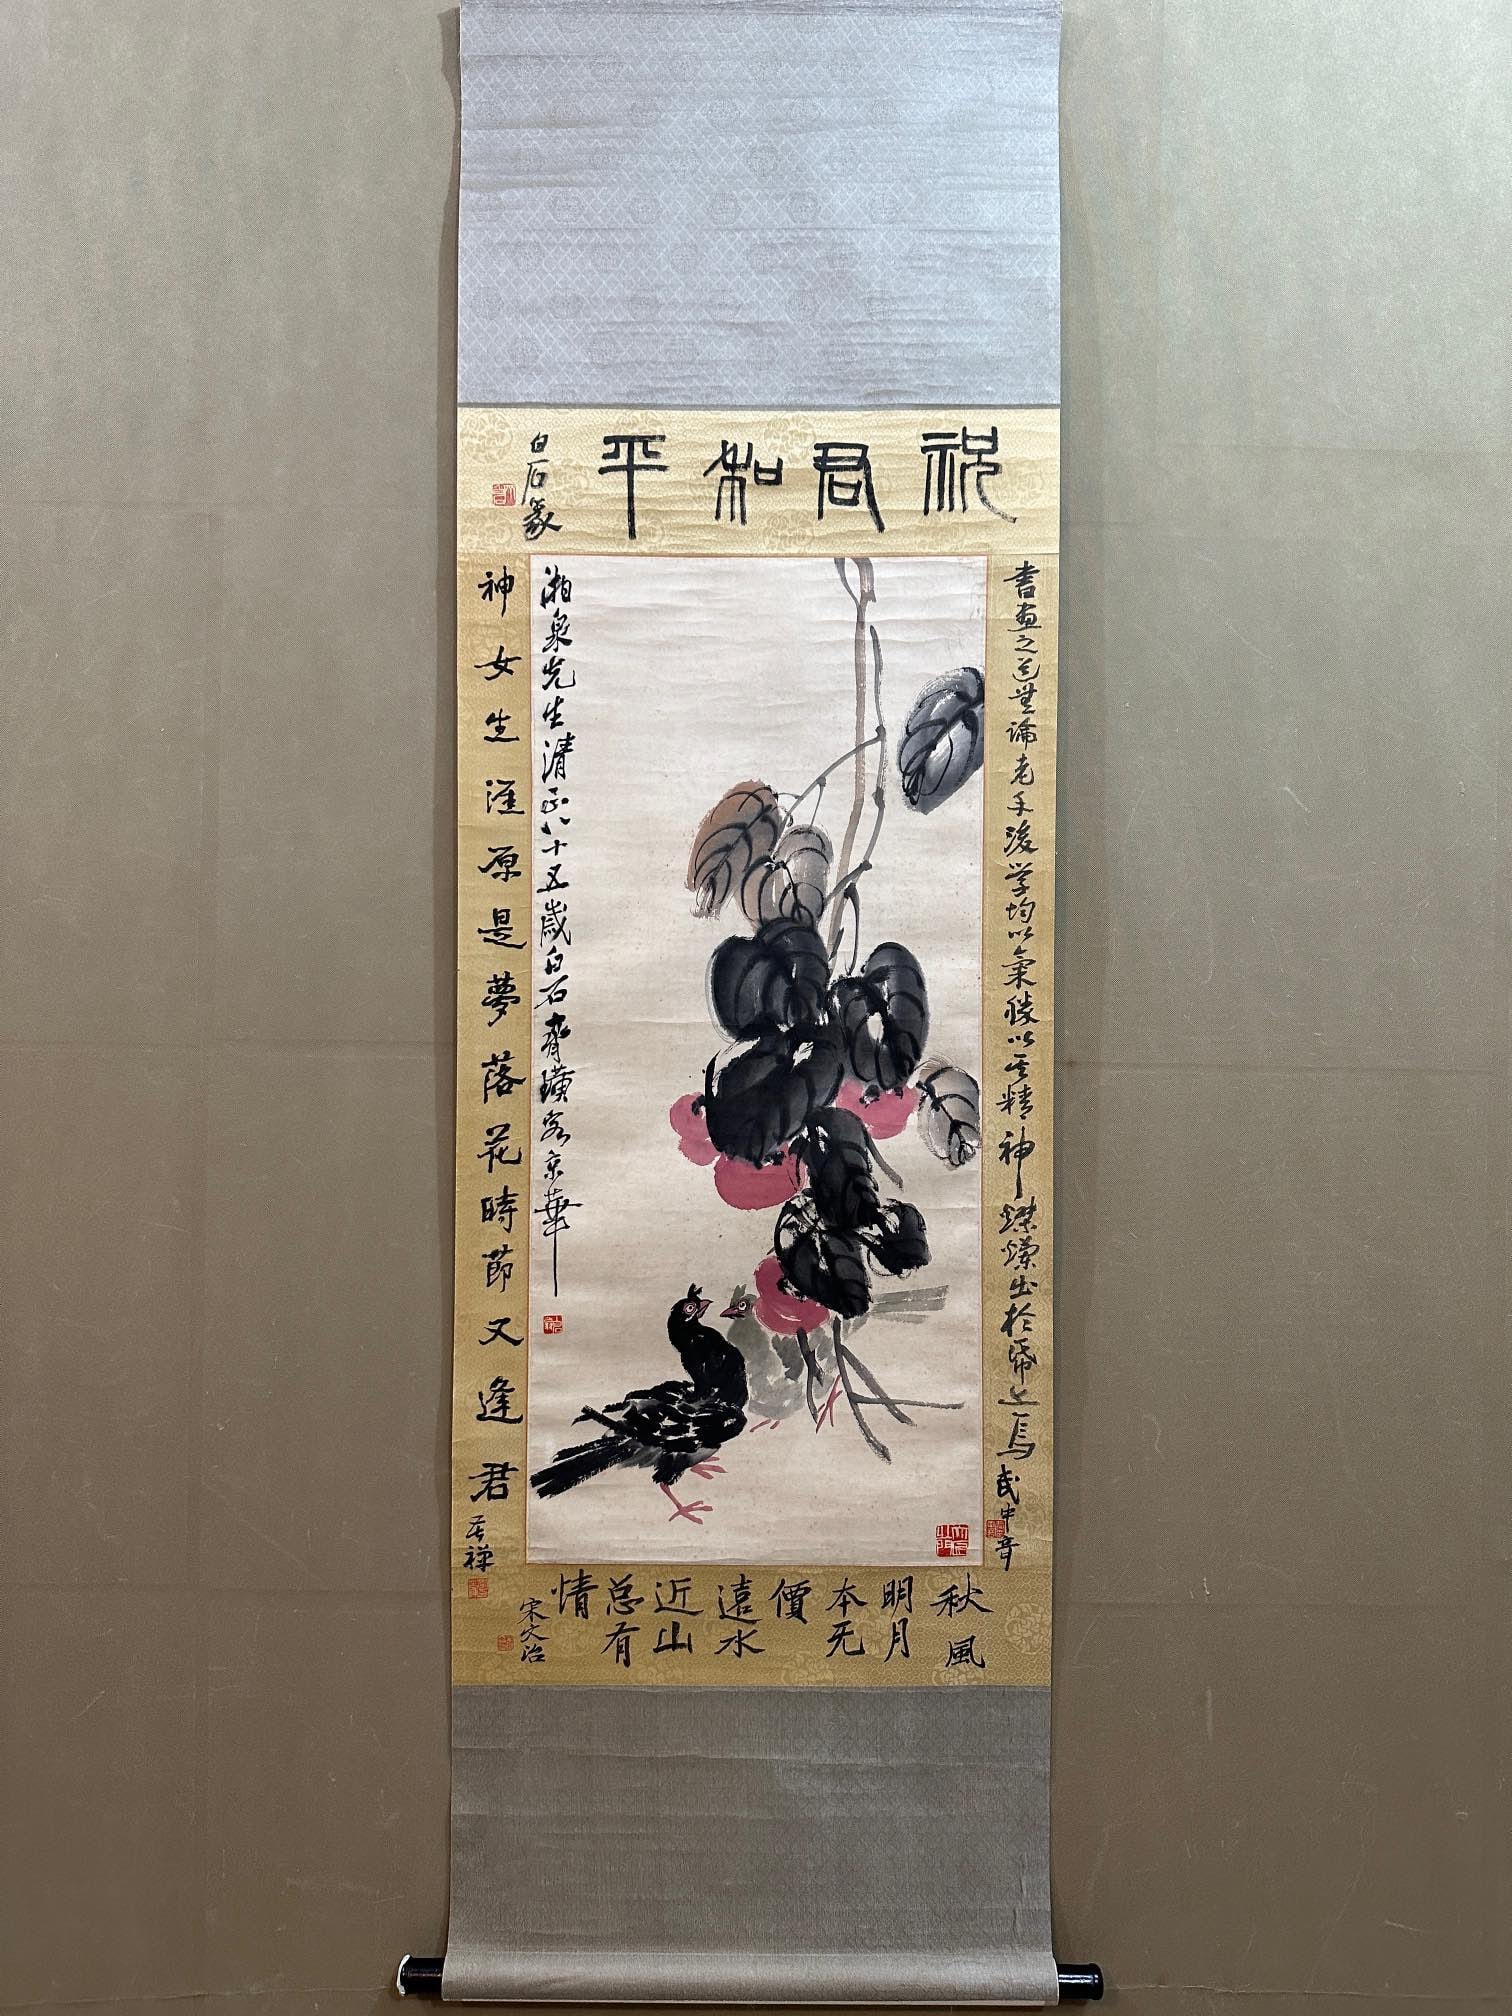 祝君和平
白石篆
書画之道無論老手後学均以氣勝以其精神燦爛出於纸上焉
湘泉先生清正八十五歲白石齊璜客京華
神女生涯原是夢落花時節又逢君
苦禅
秋風
明月
本无
價
遠水
近山
总有
情
宋文治